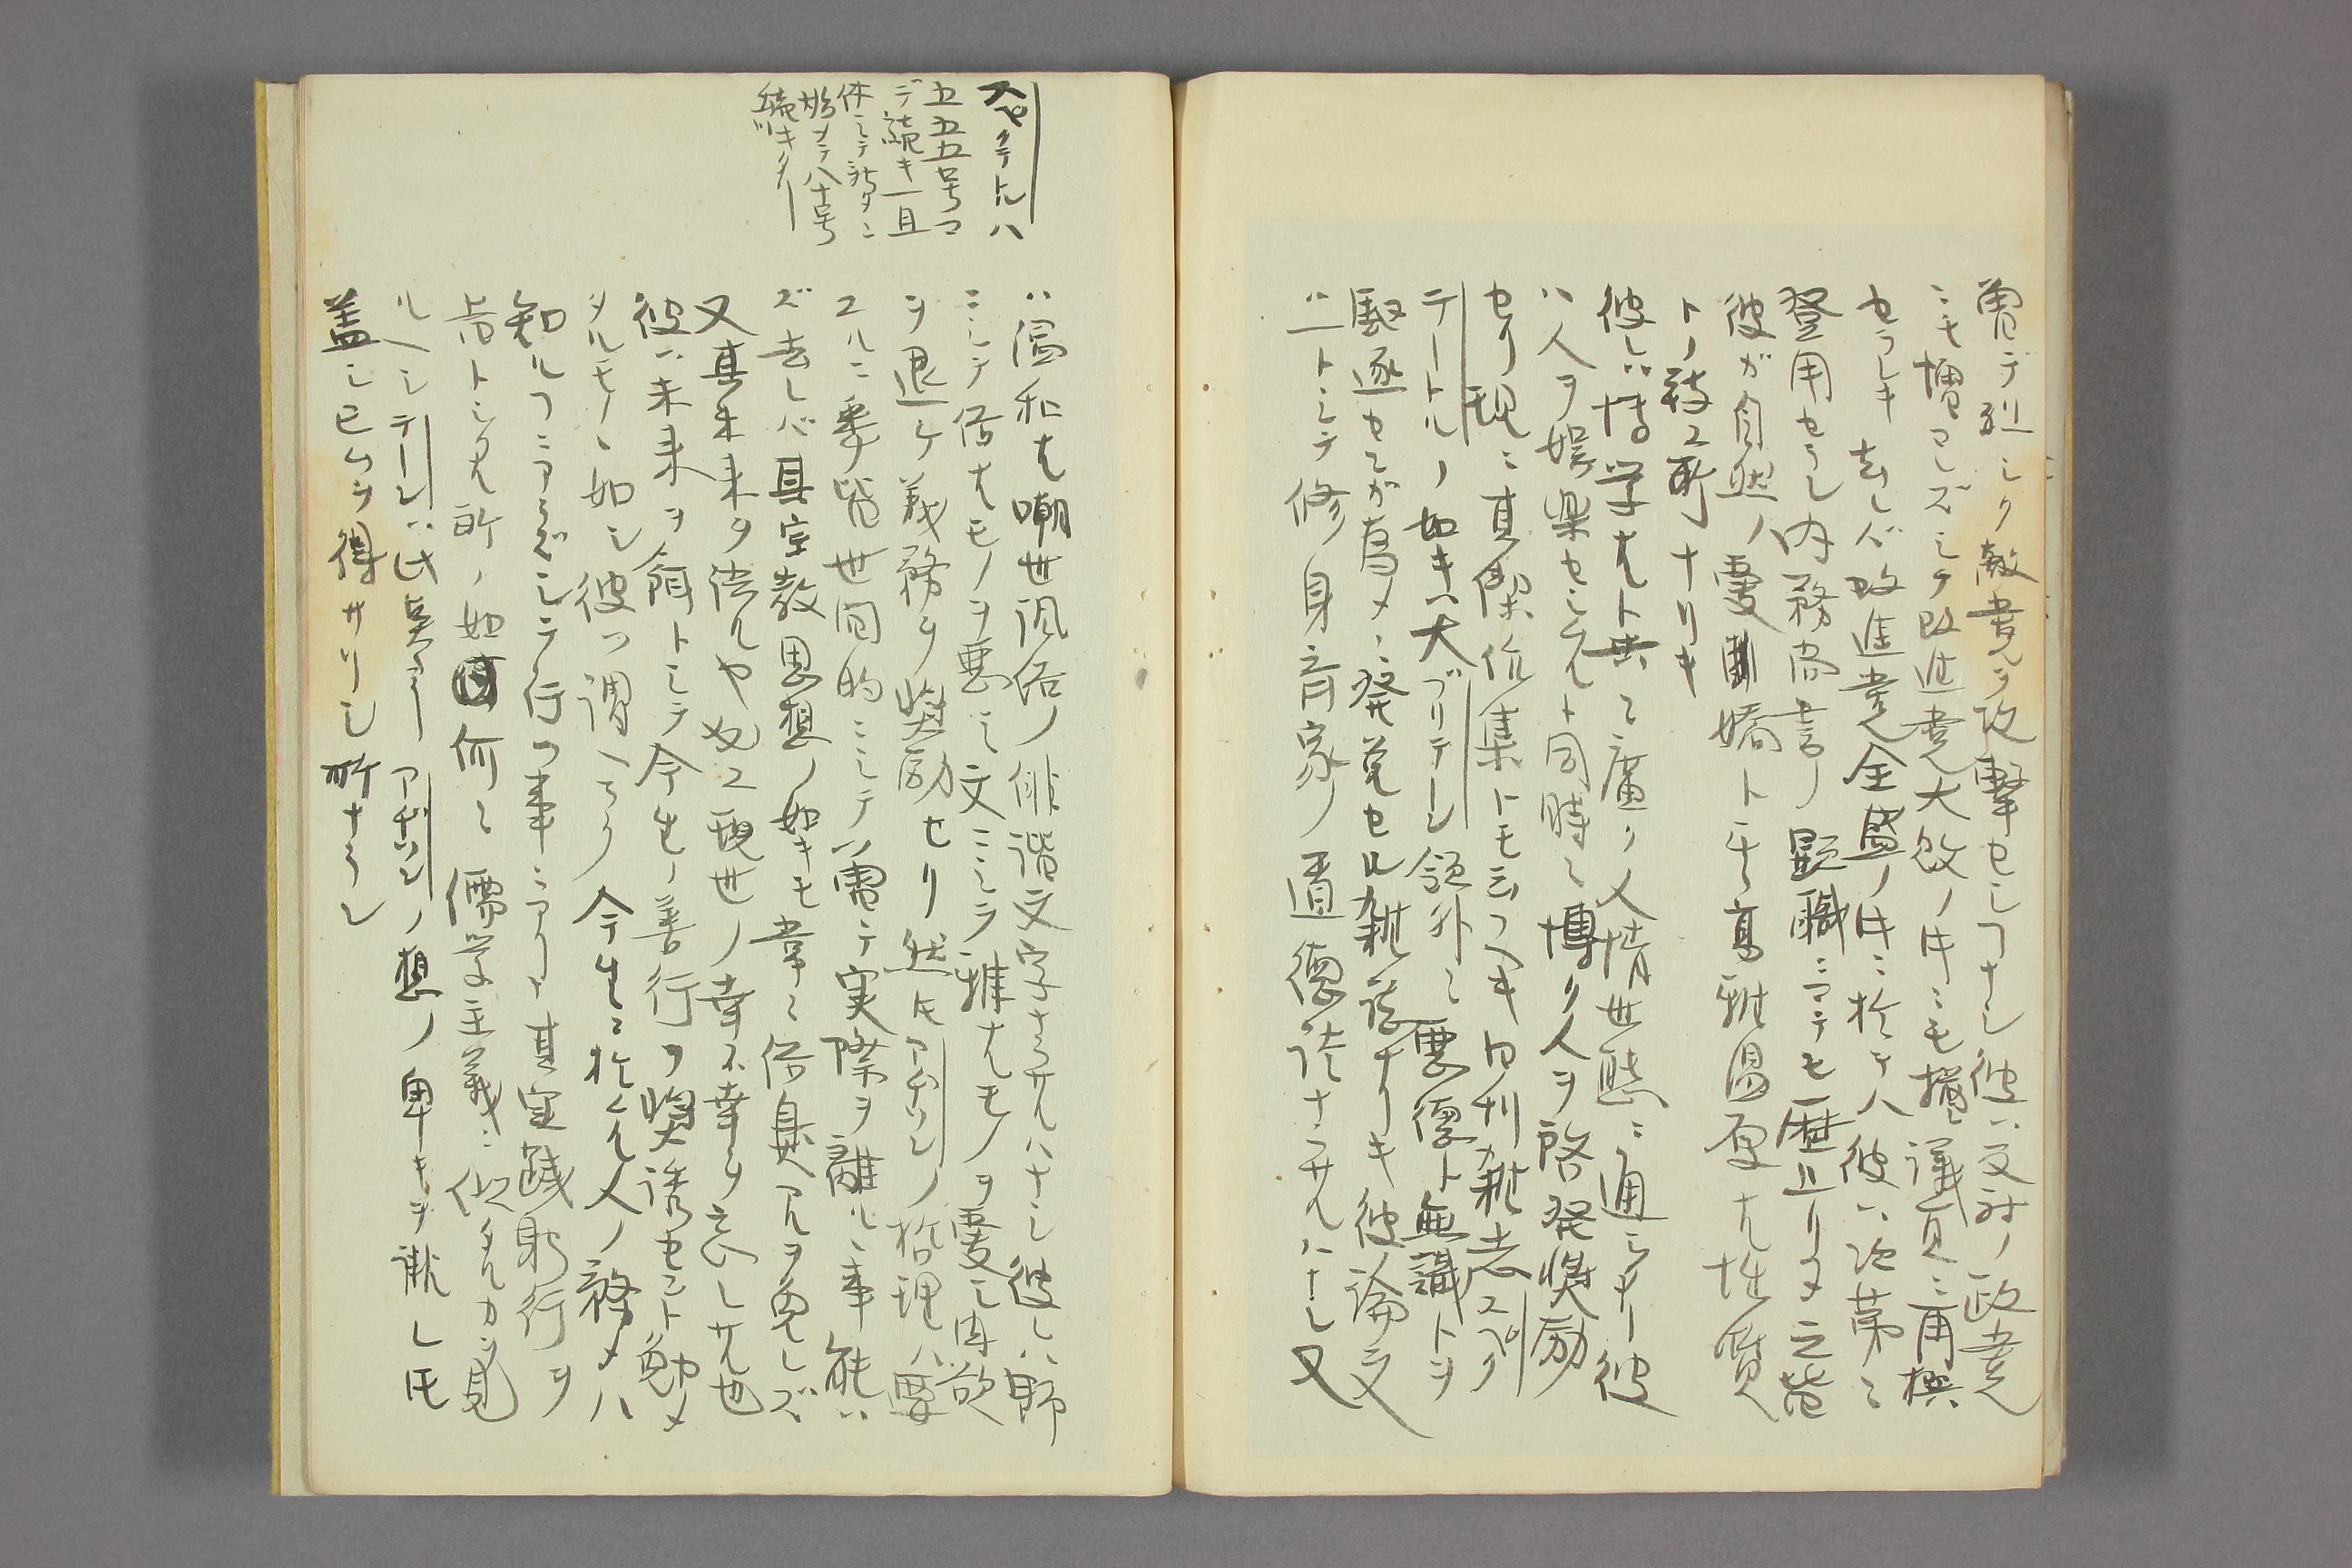 曽テ烈シク敵党ヲ攻撃セシコナシ彼ハ反対ノ政党
ニモ憎マレズシテ改進党大敗ノ時ニモ議員ニ再撰
セラレキ去レバ改進党全盛ノ時ニ於テハ彼ハ次第ニ
登用セラレ内務尚書ノ顕職ニマデモ歴上リタ之皆
彼が自然ノ愛嬌ト高雅温厚ナル性質
トノ致ス所ナリキ
彼レハ博学ナルト共ニ廣ク人情世態ニ通シキ彼
ハ人ヲ娯楽セシムルト同時ニ博ク人ヲ啓発奨励
セリ現ニ其傑作集トモ云フヘキ日刊雑志スペク
テートルノ如キハ大ブリテーン領外ニ悪徳ト無識トヲ
駆逐セムガ為メニ発兌セル雑誌ナリキ彼ノ論文
ハ一トシテ修身斉家ノ道徳談ナラザルハナシ又
ハ温和ナル嘲世諷俗ノ俳諧文字ナラザルハナシ彼レハ野
ニシテ俗ナルモノヲ悪ミ文ニシテ雅ナルモノヲ愛シ肉欲
ヲ退ケ義務ヲ奨励セリ然レ𪜈アヂソンノ倫理ハ要
スルニ畢竟世間的ニシテ曽テ実際ヲ離ルヽ事能ハ
ズ去レバ其宗教思想ノ如キモ常ニ俗臭アルヲ免レズ
又其未来ヲ談ルヤ猶ホ現世ノ幸不幸ヲ忘レザル也
彼ハ未来ヲ餌トシテ今生ノ善行ヲ奨誘セント勉メ
タルモノヽ如シ彼ノ謂ヘラク今生ニ於ケル人ノ務メハ
知ルコニアラズシテ行フ事ニアリト其実践躬行ヲ
旨トシタル所ノ如何ニ儒学主義ニ似タルカヲ見
ルヘシテーンハ此点ヨリアヂソンノ想ノ卑キヲ譏レ𪜈
蓋シ已ムヲ得ザリシ所ナラン
スペクテトルハ
五五五号マ
デ続キ一旦
休シテ新タニ
始メテ八十号
続キタリ